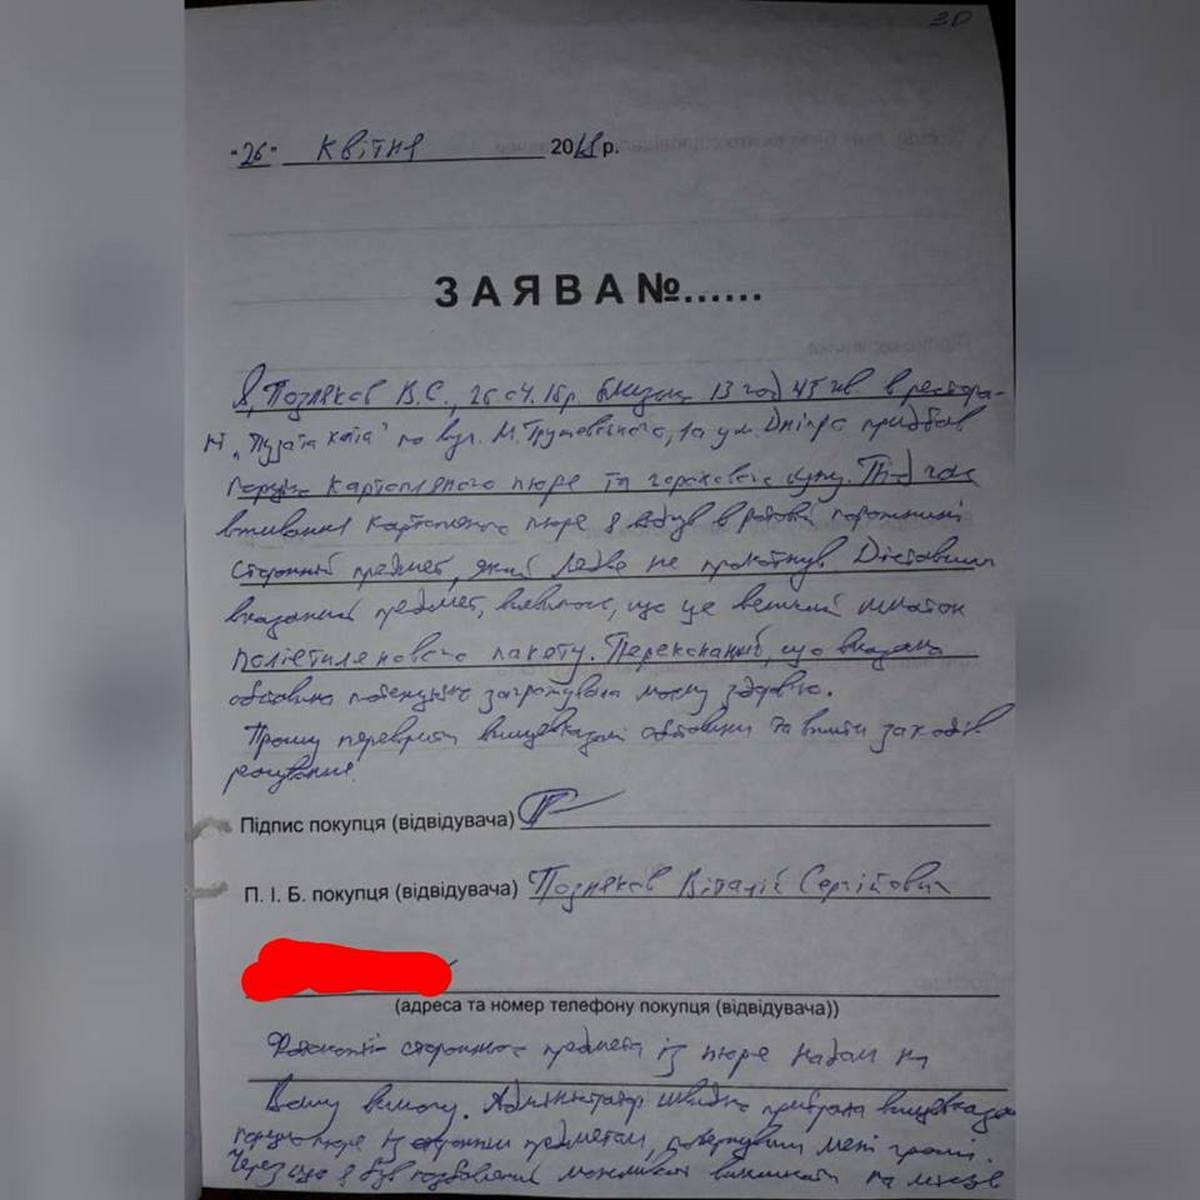 30
"26" квітня 2018 р.
ЗАЯВА №......
Я, Позняков В.С., 26.04.18р. близько 13 год 45 хв. в рестора-
ні „Пузата хата" по вул. М. Грушевського, 1а у м. Дніпро придбав
порцію картопляного пюре та горохового супу. Під час
вживання картопляного пюре я відчув в ротовій порожнині
сторонній предмет, який ледве не проковтнув. Діставши
вказаний предмет, виявилось, що це великий шматок
поліетиленового пакету. Переконаний, що вказана
обставина потенційно загрожувала моєму здоров'ю.
Прошу перевірити вищевказані обставини та вжити заходів
реагування.
Підпис покупця (відвідувача)
П. І. Б. покупця (відвідувача) Позняков Віталій Сергійович
(адреса та номер телефону покупця (відвідувача))
Фотокопії стороннього предмета із пюре надам на
Вашу вимогу. Адміністратор швидко прибрала вищевказану
порцію пюре із стороннім предметом, повернувши мені гроші.
Через що я був позбавлений можливості викликати на місце